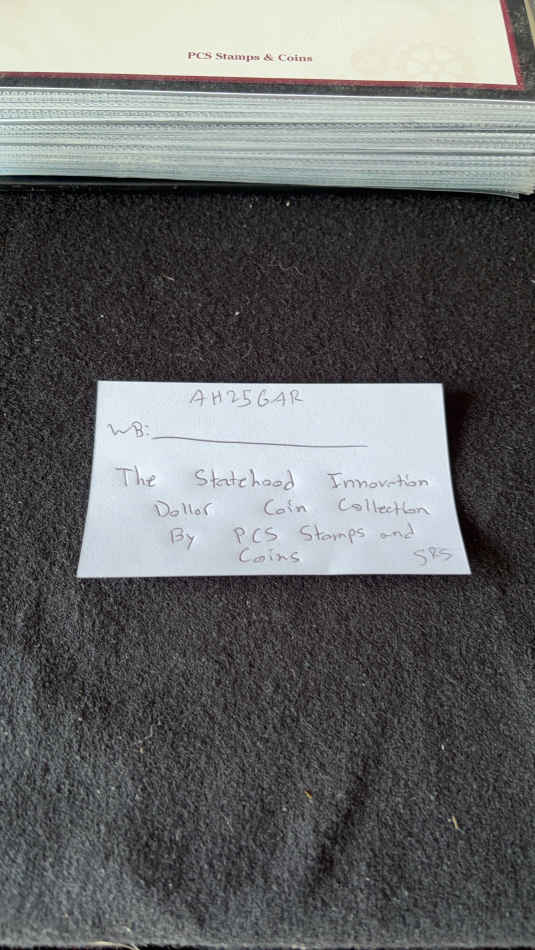 PCS Stamps & Coins
AH25GAR
WB:
The Statehood Innovation
Dollar Coin Collection
By PCS Stamps and
Coins